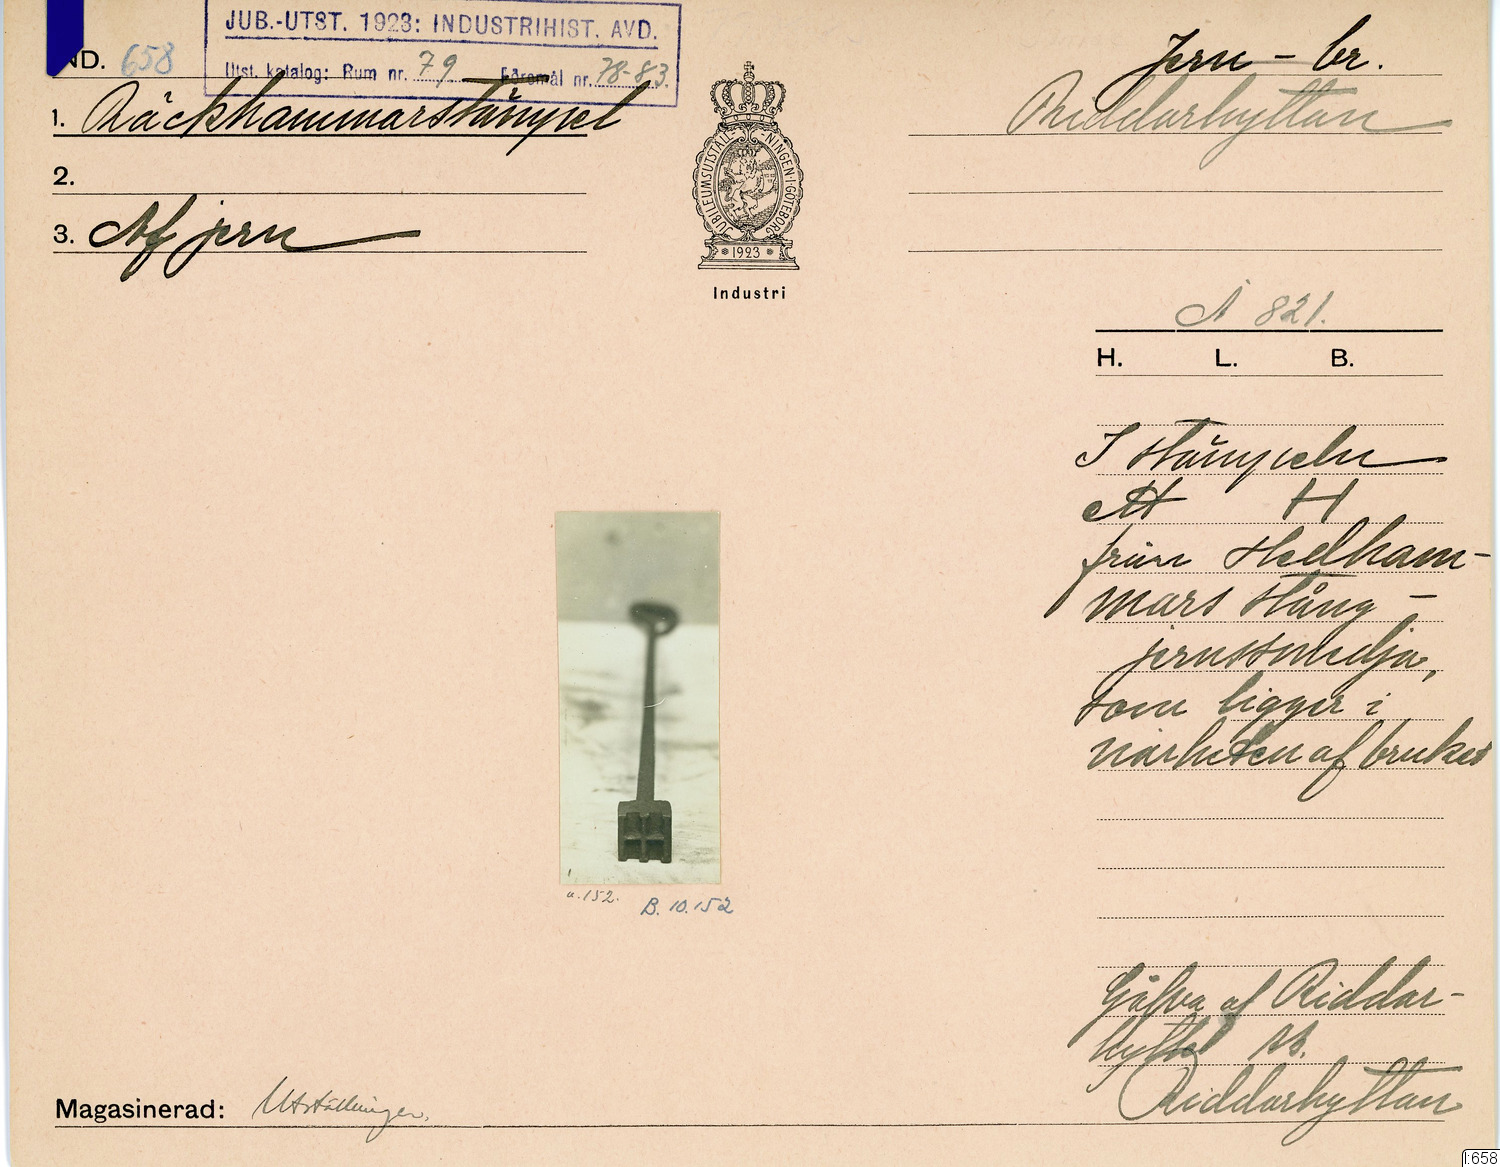 JUB.-UTST. 1923: INDUSTRIHIST. AVD.
Utst. katalog: Rum nr. 79 Föremål nr. 78-83.
IND. 658
1. Räckhammarstämpel
2.
3. Af jern
JUBILEUMSUTSTÄLL-NINGEN·I·GÖTEBORG
1923
Industri
Jern - br.
Riddarhyttan
A 821.
H. L. B.
I stämpeln
H
från Hedham-
mars stång-
jernssmedja,
som ligger i
närheten af bruket
a.152.
B. 10.152
Gåfva af Riddar-
hytte AB.
Riddarhyttan
Magasinerad: Utställningen.
I:658